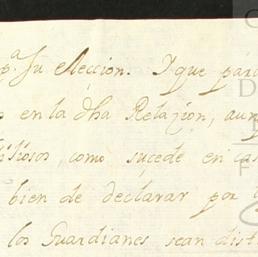 pª. su eleccion. Y que para
en la dha Relazion, aun
como sucede en cas
bien de declarar por
los Guardianes sean dist